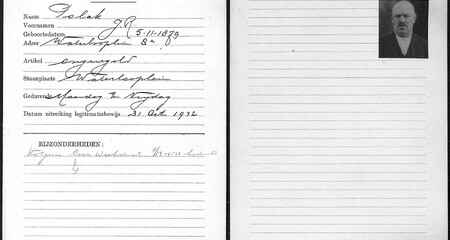 Naam Polak
Voornamen J.R.
Geboortedatum 5-11-1879
Adres Waterlooplein 8a
Artikel ongeregeld
Staanplaats Waterlooplein
Gedurende Maandag t/m Vrijdag
Datum uitreiking legitimatiebewijs 31 Oct. 1932
BIJZONDERHEDEN:
Volgens